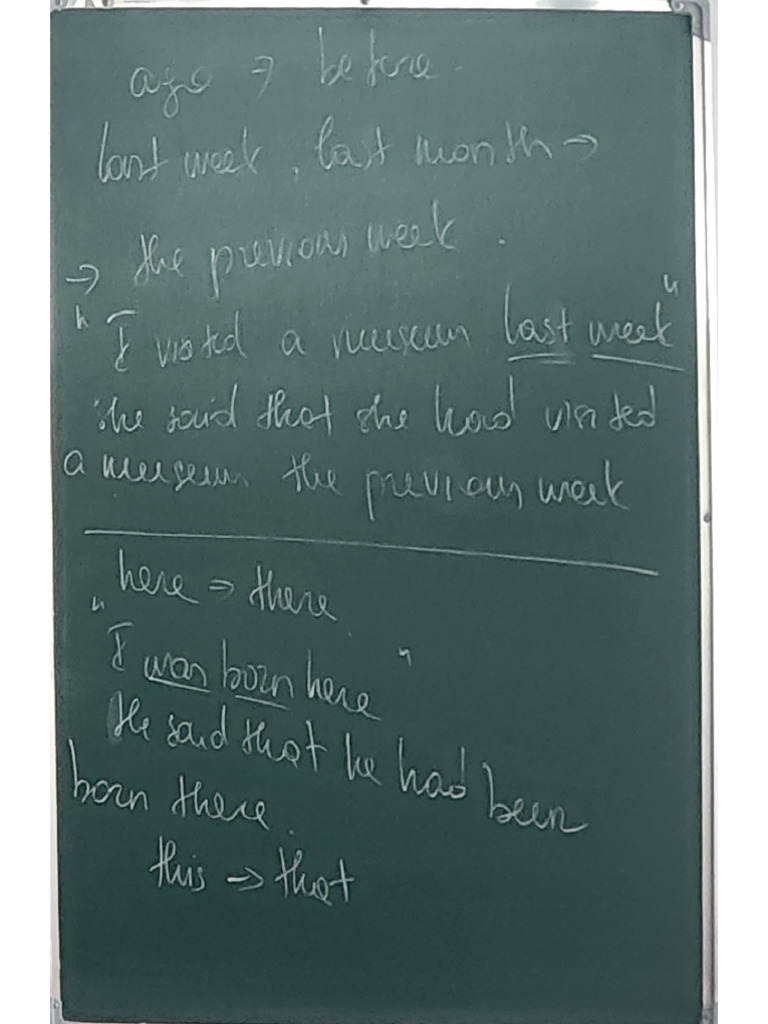 ago → before.
last week, last month →
→ the previous week.
"I visited a museum last week"
She said that she had visited
a museum the previous week
here → there
"I was born here"
He said that he had been
born there.
this → that